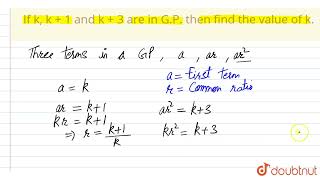 If k, k + 1 and k + 3 are in G.P., then find the value of k.
Three terms in a GP, a, ar, ar²
a = First term
r = Common ratio
a = k
ar = k+1
ar² = k+3
kr = k+1
kr² = k+3
⇒ r = k+1/k
doubtnut